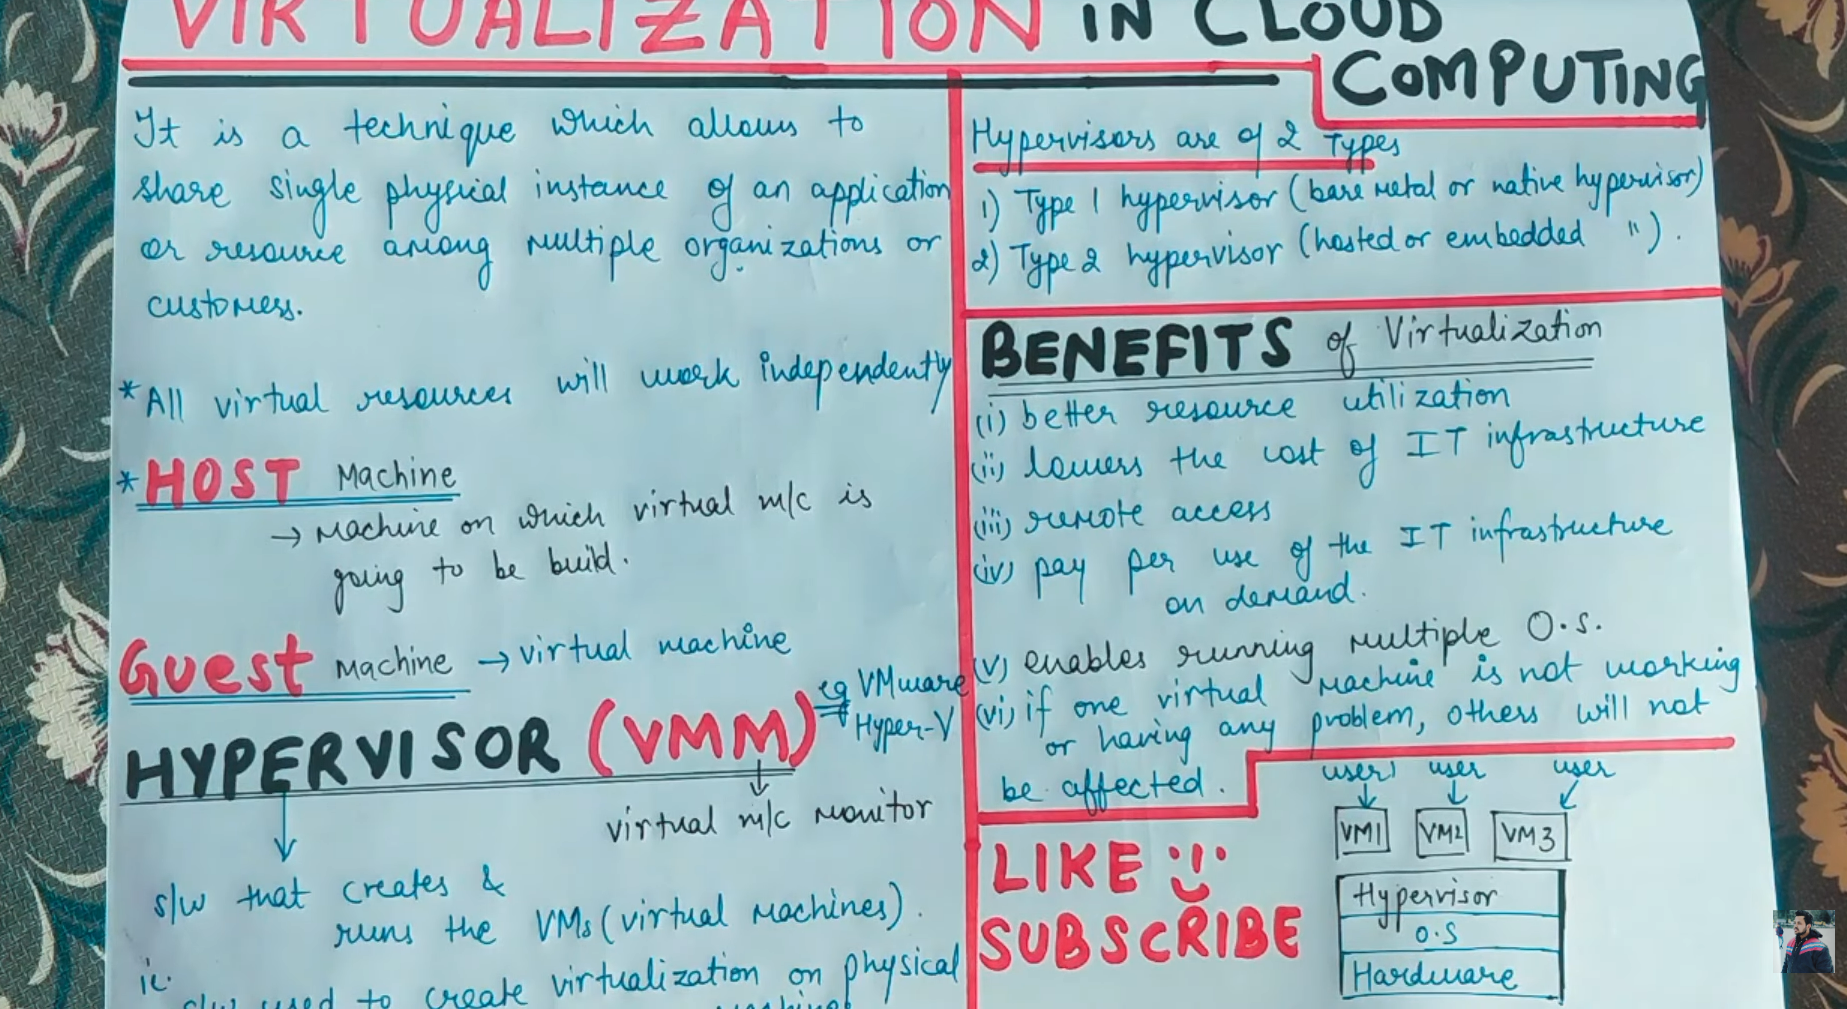 VIRTUALIZATION IN CLOUD
COMPUTING
It is a technique which allows to
share single physical instance of an application
or resource among multiple organizations or
customers.
*All virtual resources will work independently
*HOST Machine
→ Machine on which virtual m/c is
going to be build.
Guest Machine → virtual machine
HYPERVISOR (VMM) eg VMware
Hyper-V
virtual m/c monitor
s/w that creates &
runs the VMs (virtual machines).
ie.
s/w used to create virtualization on physical
Hypervisors are of 2 Types
1) Type 1 hypervisor (bare metal or native hypervisor)
2) Type 2 hypervisor (hosted or embedded " ).
BENEFITS of Virtualization
(i) better resource utilization
(ii) lowers the cost of IT infrastructure
(iii) remote access
(iv) pay per use of the IT infrastructure
on demand.
(v) enables running multiple O.S.
(vi) if one virtual machine is not working
or having any problem, others will not
be affected.
LIKE
SUBSCRIBE
user1 user user
VM1 VM2 VM3
Hypervisor
O.S
Hardware